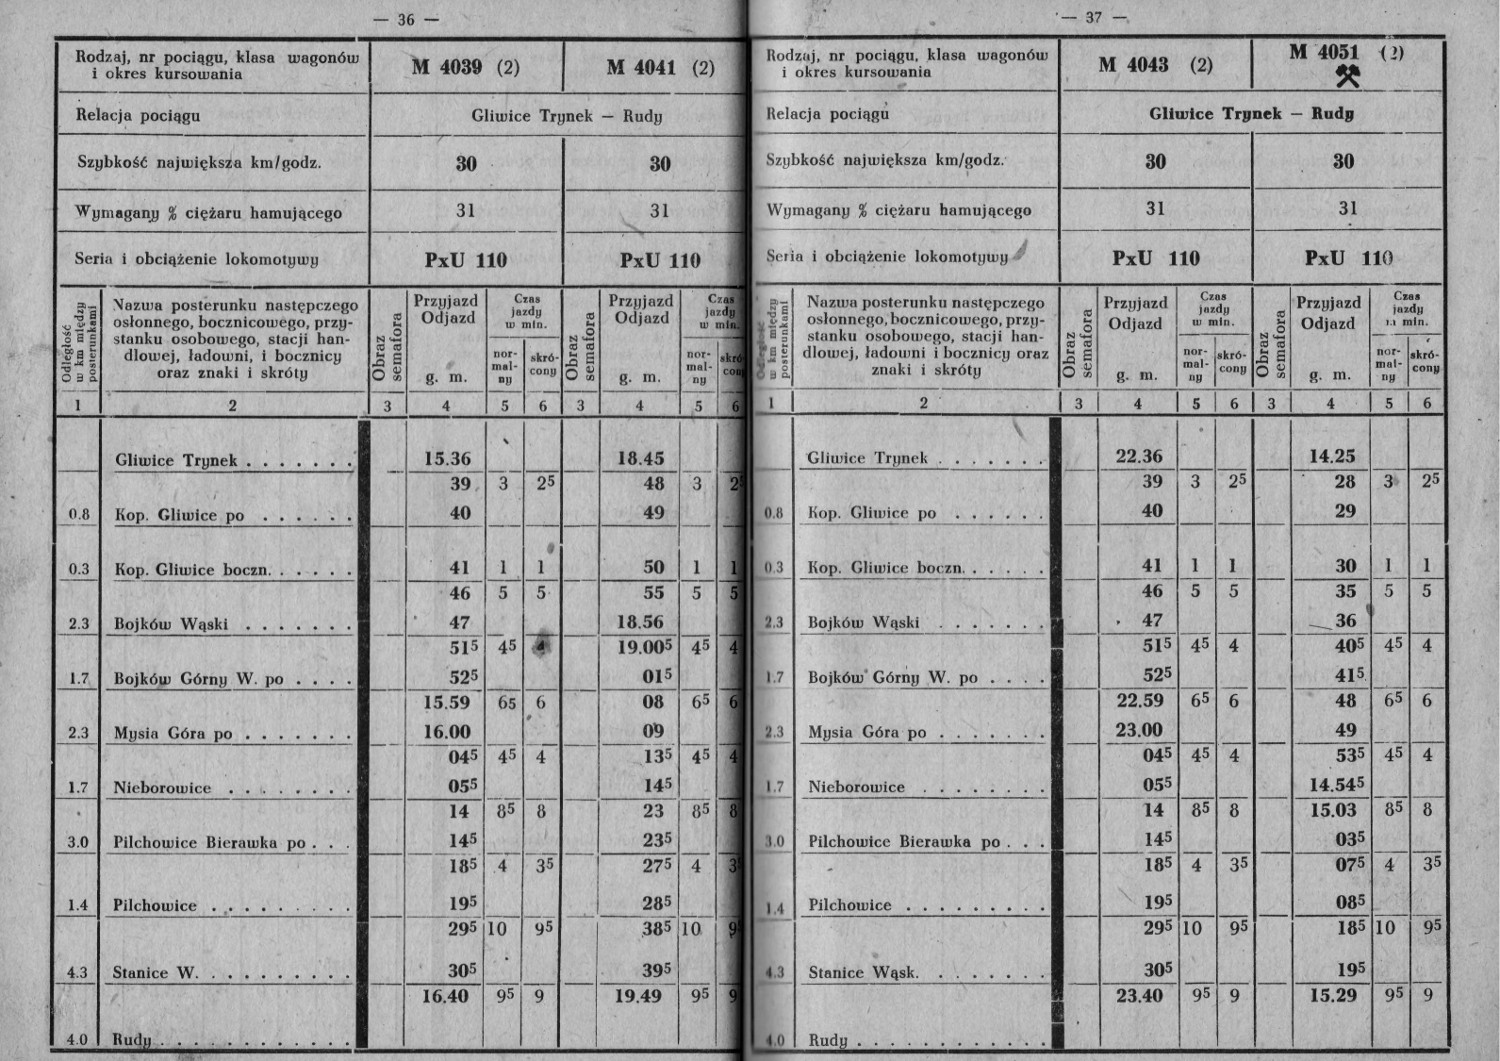 — 36 —
Rodzaj, nr pociągu, klasa wagonów i okres kursowania M 4039 (2) M 4041 (2)
Relacja pociągu Gliwice Trynek — Rudy
Szybkość największa km/godz. 30 30
Wymagany % ciężaru hamującego 31 31
Seria i obciążenie lokomotywy PxU 110 PxU 110
Odległość w km między posterunkami
Nazwa posterunku następczego
osłonnego, bocznicowego, przy-
stanku osobowego, stacji han-
dlowej, ładowni, i bocznicy
oraz znaki i skróty
Obraz semafora
Przyjazd
Odjazd
g. m.
Czas
jazdy
w min.
nor-
mal-
ny
skró-
cony
Obraz semafora
Przyjazd
Odjazd
g. m.
Czas
jazdy
w min.
nor-
mal-
ny
1 2 3 4 5 6 3 4 5 6
Gliwice Trynek . . . . . . . 15.36 18.45
39 3 2⁵ 48 3
0.8 Kop. Gliwice po . . . . . . 40 49
0.3 Kop. Gliwice boczn. . . . . . 41 1 1 50 1 1
46 5 5 55 5 5
2.3 Bojków Wąski . . . . . . . 47 18.56
51⁵ 4⁵ 4 19.00⁵ 4⁵ 4
1.7 Bojków Górny W. po . . . . 52⁵ 01⁵
15.59 65 6 08 6⁵ 6
2.3 Mysia Góra po . . . . . . . 16.00 09
04⁵ 4⁵ 4 13⁵ 4⁵ 4
1.7 Nieborowice . . . . . . . 05⁵ 14⁵
14 8⁵ 8 23 8⁵ 8
3.0 Pilchowice Bierawka po . . . 14⁵ 23⁵
18⁵ 4 3⁵ 27⁵ 4
1.4 Pilchowice . . . . . . . . . 19⁵ 28⁵
29⁵ 10 9⁵ 38⁵ 10
4.3 Stanice W. . . . . . . . . . 30⁵ 39⁵
16.40 9⁵ 9 19.49 9⁵ 9
4.0 Rudy . . . . . . . . . . . .
— 37 —
Rodzaj, nr pociągu, klasa wagonów i okres kursowania M 4043 (2) M 4051 (2)
Relacja pociągu Gliwice Trynek — Rudy
Szybkość największa km/godz. 30 30
Wymagany % ciężaru hamującego 31 31
Seria i obciążenie lokomotywy PxU 110 PxU 110
Odległość w km między posterunkami
Nazwa posterunku następczego
osłonnego, bocznicowego, przy-
stanku osobowego, stacji han-
dlowej, ładowni i bocznicy oraz
znaki i skróty
Obraz semafora
Przyjazd
Odjazd
g. m.
Czas
jazdy
w min.
nor-
mal-
ny
skró-
cony
Obraz semafora
Przyjazd
Odjazd
g. m.
Czas
jazdy
min.
nor-
mal-
ny
skró-
cony
1 2 3 4 5 6 3 4 5 6
Gliwice Trynek . . . . . . . 22.36 14.25
39 3 2⁵ 28 3 2⁵
0.8 Kop. Gliwice po . . . . . . 40 29
0.3 Kop. Gliwice boczn. . . . . . 41 1 1 30 1 1
46 5 5 35 5 5
2.3 Bojków Wąski . . . . . . . 47 36
51⁵ 4⁵ 4 40⁵ 4⁵ 4
1.7 Bojków Górny W. po . . . . 52⁵ 41⁵
22.59 6⁵ 6 48 6⁵ 6
2.3 Mysia Góra po . . . . . . . 23.00 49
04⁵ 4⁵ 4 53⁵ 4⁵ 4
1.7 Nieborowice . . . . . . . . 05⁵ 14.54⁵
14 8⁵ 8 15.03 8⁵ 8
3.0 Pilchowice Bierawka po . . . 14⁵ 03⁵
18⁵ 4 3⁵ 07⁵ 4 3⁵
1.4 Pilchowice . . . . . . . . . 19⁵ 08⁵
29⁵ 10 9⁵ 18⁵ 10 9⁵
4.3 Stanice Wąsk. . . . . . . . 30⁵ 19⁵
23.40 9⁵ 9 15.29 9⁵ 9
4.0 Rudy . . . . . . . . . . . .